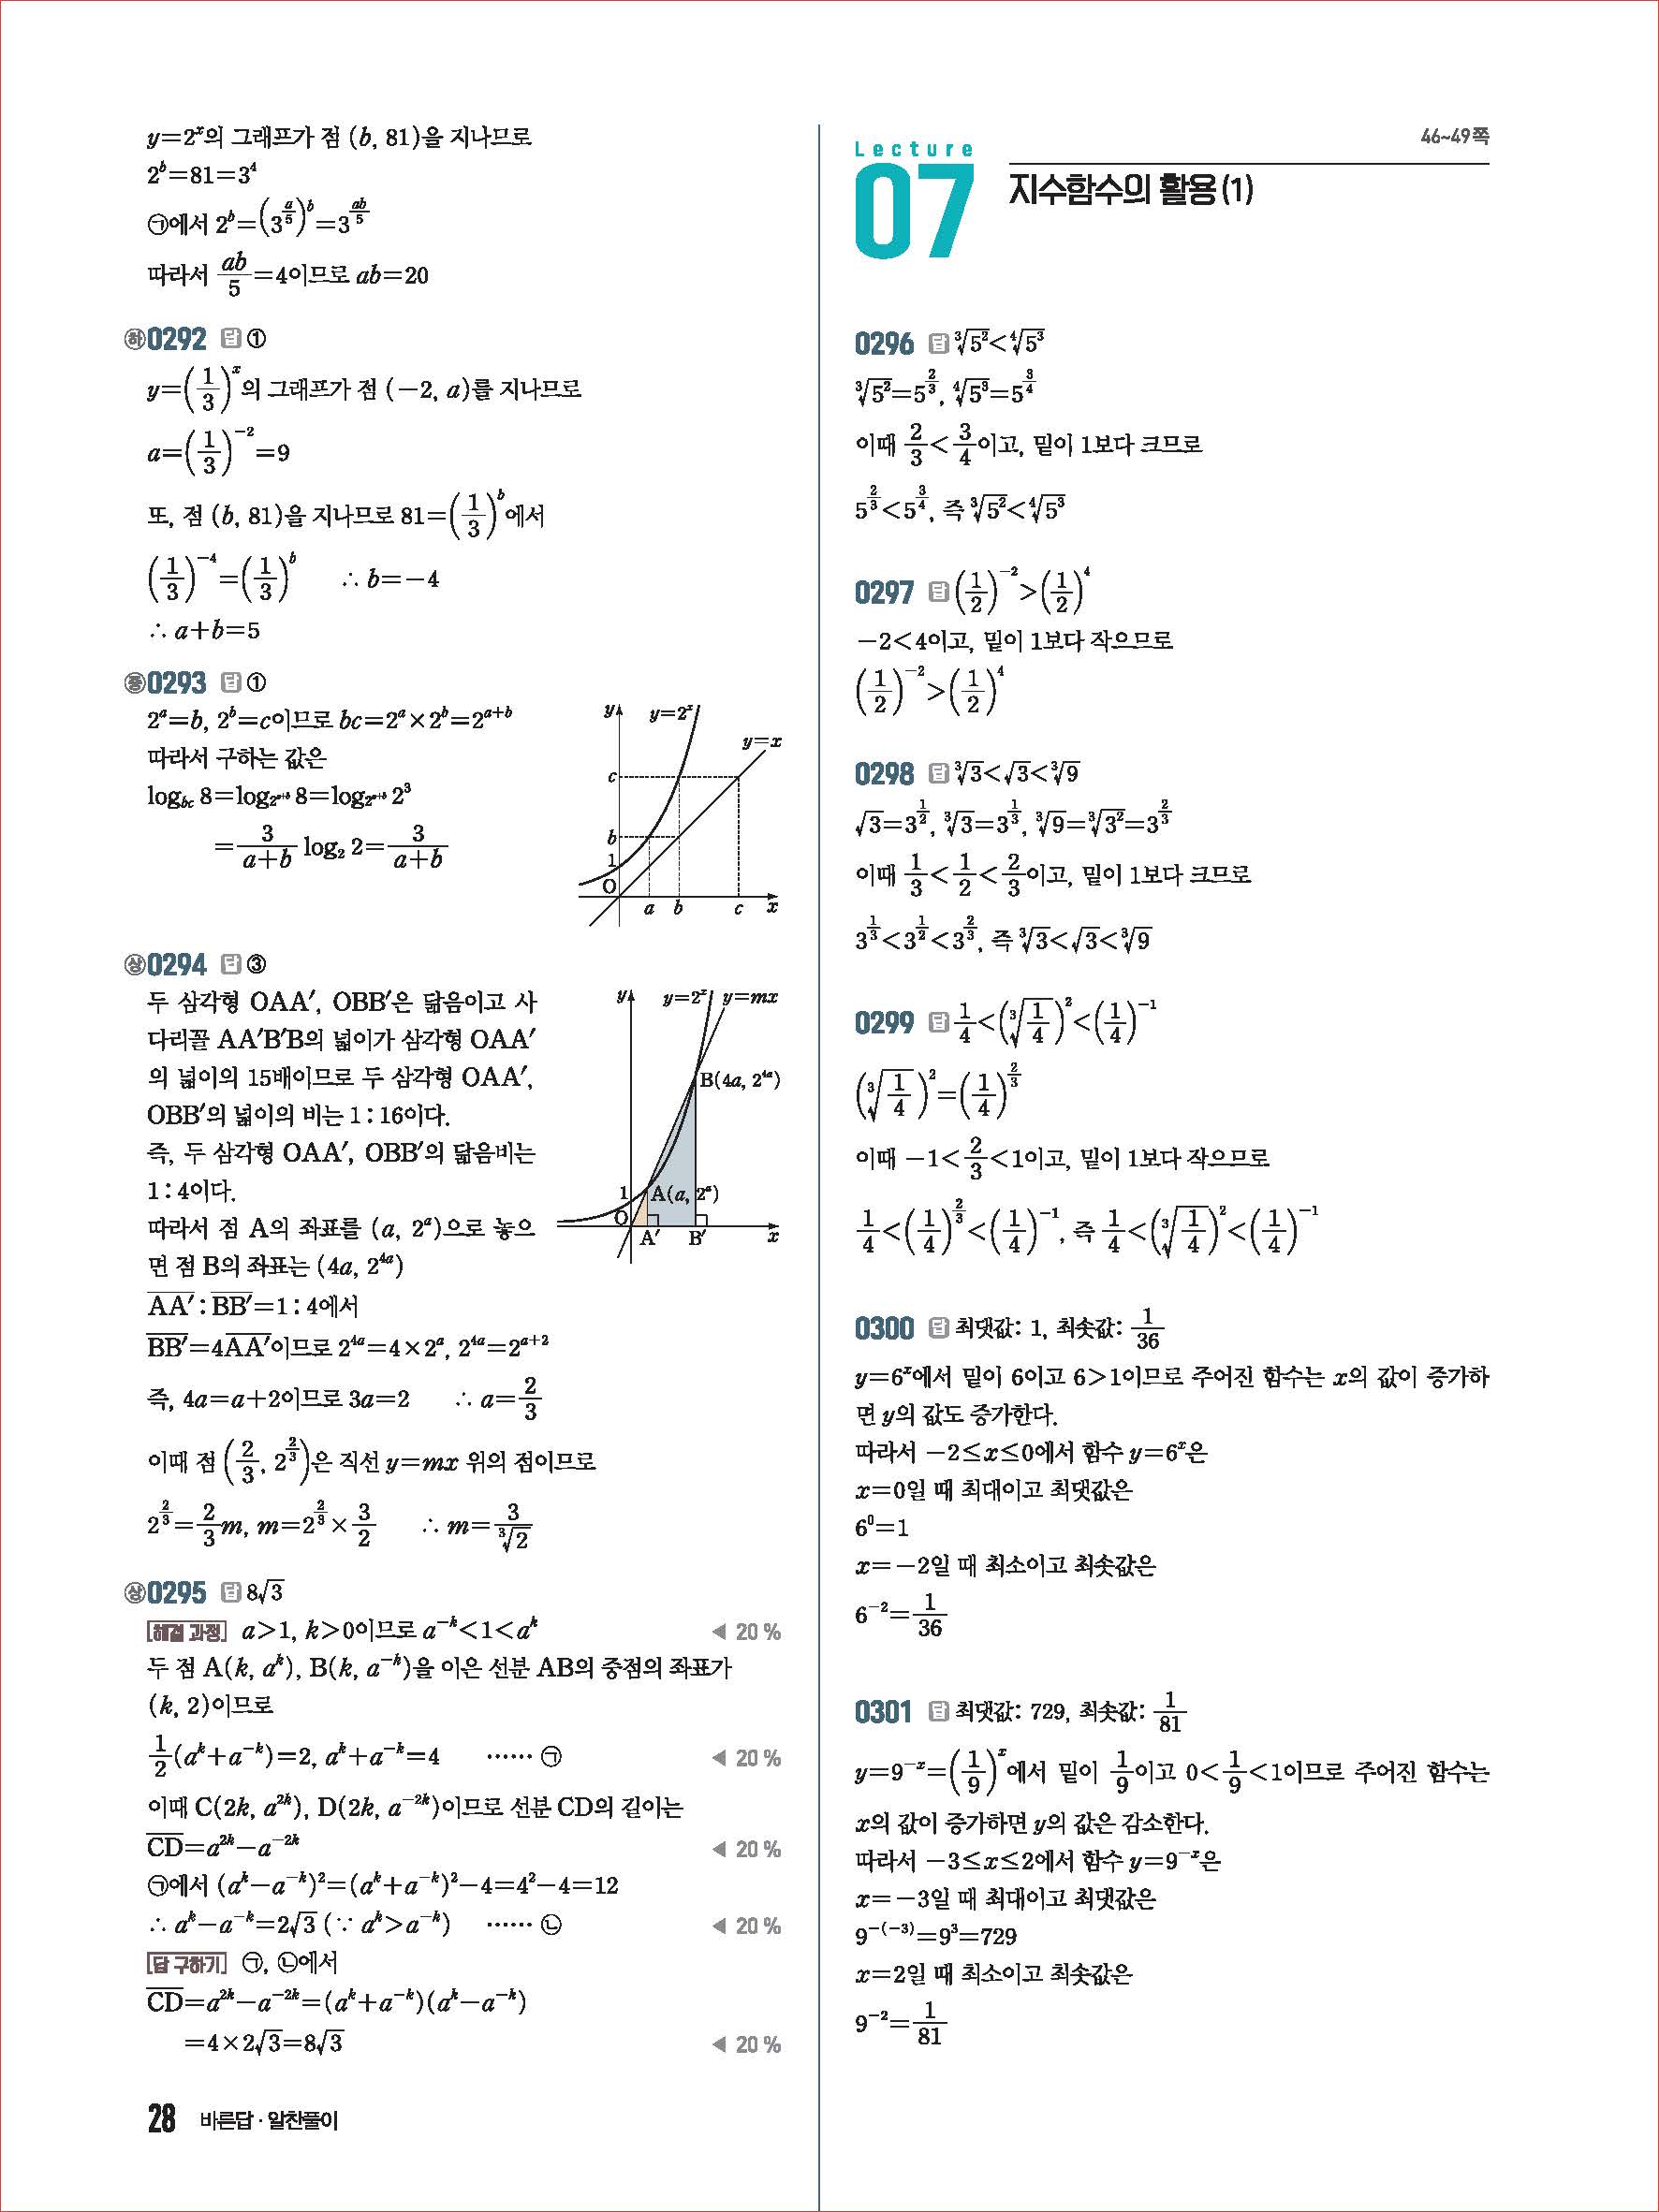 y=2^x의 그래프가 점 (b, 81)을 지나므로
2^b=81=3^4
㉠에서 2^b=(3^(a/5))^b=3^(ab/5)
따라서 ab/5=4이므로 ab=20
㉻0292 답 ①
y=(1/3)^x의 그래프가 점 (-2, a)를 지나므로
a=(1/3)^(-2)=9
또, 점 (b, 81)을 지나므로 81=(1/3)^b에서
(1/3)^(-4)=(1/3)^b ∴ b=-4
∴ a+b=5
중0293 답 ①
2^a=b, 2^b=c이므로 bc=2^a×2^b=2^(a+b)
따라서 구하는 값은
log_bc 8=log_2^(a+b) 8=log_2^(a+b) 2^3
=3/(a+b) log_2 2=3/(a+b)
y
y=2^x
y=x
c
b
1
O
a b c x
상0294 답 ③
두 삼각형 OAA′, OBB′은 닮음이고 사
다리꼴 AA′B′B의 넓이가 삼각형 OAA′
의 넓이의 15배이므로 두 삼각형 OAA′,
OBB′의 넓이의 비는 1:16이다.
즉, 두 삼각형 OAA′, OBB′의 닮음비는
1:4이다.
따라서 점 A의 좌표를 (a, 2^a)으로 놓으
면 점 B의 좌표는 (4a, 2^(4a))
AA′:BB′=1:4에서
BB′=4AA′이므로 2^(4a)=4×2^a, 2^(4a)=2^(a+2)
즉, 4a=a+2이므로 3a=2 ∴ a=2/3
이때 점 (2/3, 2^(2/3))은 직선 y=mx 위의 점이므로
2^(2/3)=2/3 m, m=2^(2/3)×3/2 ∴ m=3/∛2
y y=2^x y=mx
B(4a, 2^(4a))
1 A(a, 2^a)
O
A′ B′ x
상0295 답 8√3
[해결 과정] a>1, k>0이므로 a^(-k)<1<a^k ◀ 20 %
두 점 A(k, a^k), B(k, a^(-k))을 이은 선분 AB의 중점의 좌표가
(k, 2)이므로
1/2(a^k+a^(-k))=2, a^k+a^(-k)=4 ⋯⋯ ㉠ ◀ 20 %
이때 C(2k, a^(2k)), D(2k, a^(-2k))이므로 선분 CD의 길이는
CD=a^(2k)-a^(-2k) ◀ 20 %
㉠에서 (a^k-a^(-k))^2=(a^k+a^(-k))^2-4=4^2-4=12
∴ a^k-a^(-k)=2√3 (∵ a^k>a^(-k)) ⋯⋯ ㉡ ◀ 20 %
[답 구하기] ㉠, ㉡에서
CD=a^(2k)-a^(-2k)=(a^k+a^(-k))(a^k-a^(-k))
=4×2√3=8√3 ◀ 20 %
28 바른답·알찬풀이
46~49쪽
Lecture
07 지수함수의 활용(1)
0296 답 ∛5^2<∜5^3
∛5^2=5^(2/3), ∜5^3=5^(3/4)
이때 2/3<3/4이고, 밑이 1보다 크므로
5^(2/3)<5^(3/4), 즉 ∛5^2<∜5^3
0297 답 (1/2)^(-2)>(1/2)^4
-2<4이고, 밑이 1보다 작으므로
(1/2)^(-2)>(1/2)^4
0298 답 ∛3<√3<∛9
√3=3^(1/2), ∛3=3^(1/3), ∛9=∛3^2=3^(2/3)
이때 1/3<1/2<2/3이고, 밑이 1보다 크므로
3^(1/3)<3^(1/2)<3^(2/3), 즉 ∛3<√3<∛9
0299 답 1/4<(∛(1/4))^2<(1/4)^(-1)
(∛(1/4))^2=(1/4)^(2/3)
이때 -1<2/3<1이고, 밑이 1보다 작으므로
1/4<(1/4)^(2/3)<(1/4)^(-1), 즉 1/4<(∛(1/4))^2<(1/4)^(-1)
0300 답 최댓값: 1, 최솟값: 1/36
y=6^x에서 밑이 6이고 6>1이므로 주어진 함수는 x의 값이 증가하
면 y의 값도 증가한다.
따라서 -2≤x≤0에서 함수 y=6^x은
x=0일 때 최대이고 최댓값은
6^0=1
x=-2일 때 최소이고 최솟값은
6^(-2)=1/36
0301 답 최댓값: 729, 최솟값: 1/81
y=9^(-x)=(1/9)^x에서 밑이 1/9이고 0<1/9<1이므로 주어진 함수는
x의 값이 증가하면 y의 값은 감소한다.
따라서 -3≤x≤2에서 함수 y=9^(-x)은
x=-3일 때 최대이고 최댓값은
9^(-(-3))=9^3=729
x=2일 때 최소이고 최솟값은
9^(-2)=1/81